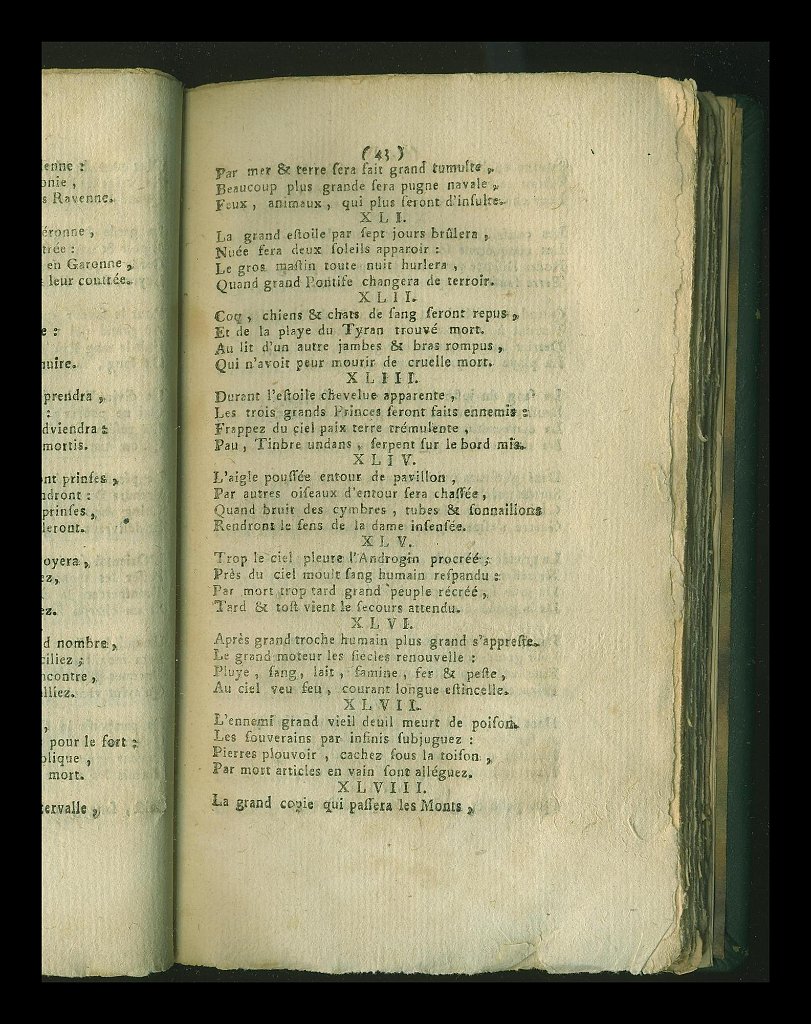 enne :
onie ,
s Ravenne.
éronne ,
trée :
en Garonne ,
leur contrée.
e :
uire.
prendra ,
:
dviendra :
mortis.
nt prinſes ,
ndront :
prinſes ,
leront.
oyera ,
ez,
ez.
d nombre ,
ciliez ;
ncontre ,
lliez.
,
pour le fort :
plique ,
mort.
tervalle ,
( 43 )
Par mer & terre ſera fait grand tumulte ,
Beaucoup plus grande ſera pugne navale ,
Feux , animaux , qui plus feront d'inſulte.
X L I.
La grand eſtoile par ſept jours brûlera ,
Nuée fera deux ſoleils apparoir :
Le gros maſtin toute nuit hurlera ,
Quand grand Pontife changera de terroir.
X L I I.
Coq , chiens & chats de ſang ſeront repus ,
Et de la playe du Tyran trouvé mort.
Au lit d'un autre jambes & bras rompus ,
Qui n'avoit peur mourir de cruelle mort.
X L I I I.
Durant l'eſtoile chevelue apparente ,
Les trois grands Princes ſeront faits ennemis :
Frappez du ciel paix terre trémulente ,
Pau , Tinbre undans , ſerpent ſur le bord mis.
X L I V.
L'aigle pouſſée entour de pavillon ,
Par autres oiſeaux d'entour ſera chaſſée ,
Quand bruit des cymbres , tubes & ſonnaillons
Rendront le ſens de la dame inſenſée.
X L V.
Trop le ciel pleure l'Androgin procréé ;
Près du ciel moult ſang humain reſpandu :
Par mort trop tard grand peuple récréé ,
Tard & toſt vient le ſecours attendu.
X L V I.
Après grand troche humain plus grand s'appreſte.
Le grand moteur les ſiècles renouvelle :
Pluye , ſang , lait , famine , fer & peſte ,
Au ciel veu feu , courant longue eſtincelle.
X L V I I.
L'ennemi grand vieil deuil meurt de poiſon.
Les ſouverains par infinis ſubjuguez :
Pierres plouvoir , cachez ſous la toiſon ,
Par mort articles en vain ſont alléguez.
X L V I I I.
La grand copie qui paſſera les Monts ,